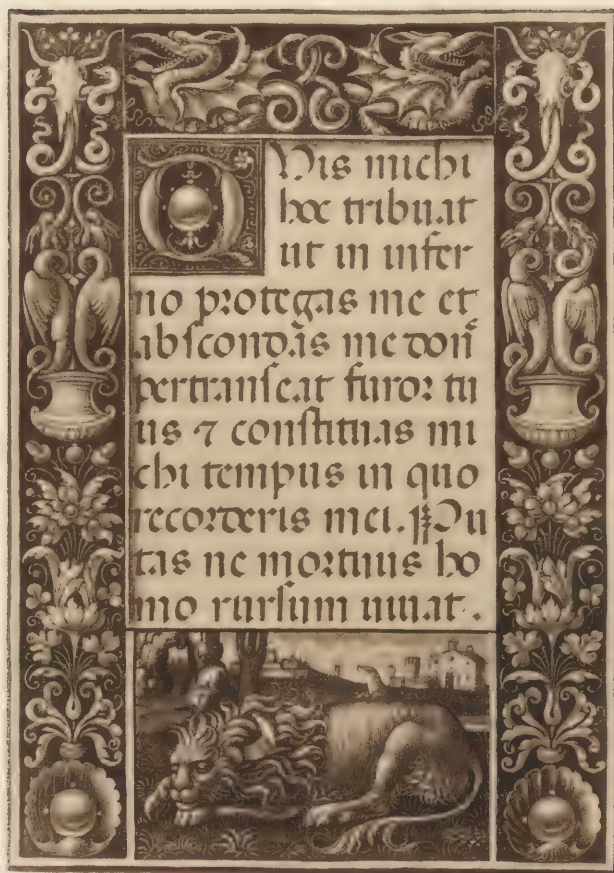 QUis michi
hoc tribuat
ut in infer
no protegas me et
abscondas me don̄
pertranseat furor tu
us ⁊ constituas mi
chi tempus in quo
recorderis mei. Pu
tas ne mortuus ho
mo rursum uiuat.